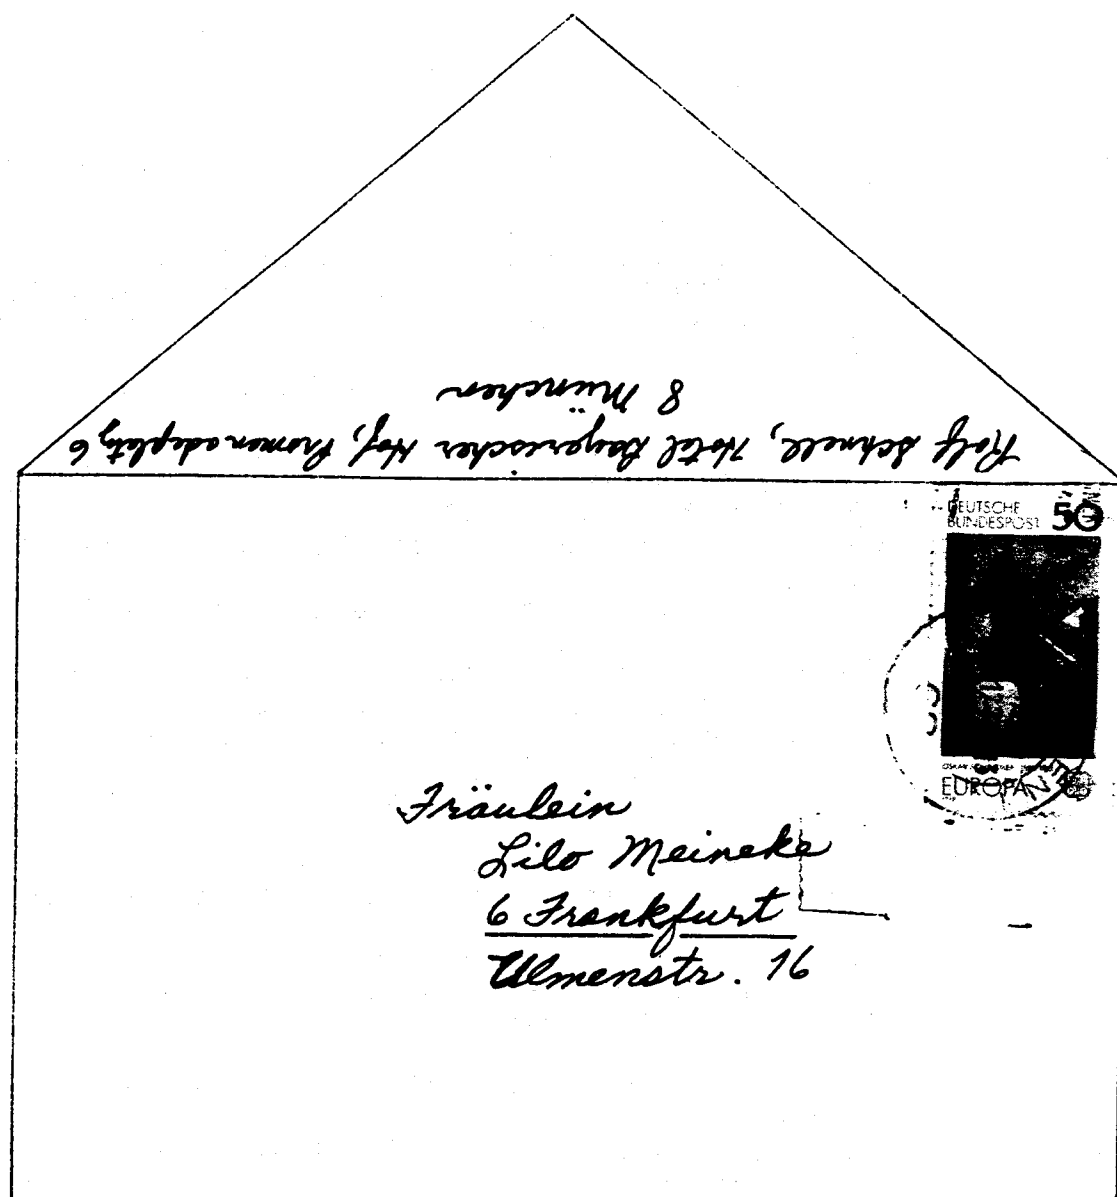 Rolf Schnell, Hotel Bayerischer Hof, Promenadeplatz 6
8 München
DEUTSCHE
BUNDESPOST 50
EUROPA
Fräulein
Lilo Meineke
6 Frankfurt
Ulmenstr. 16